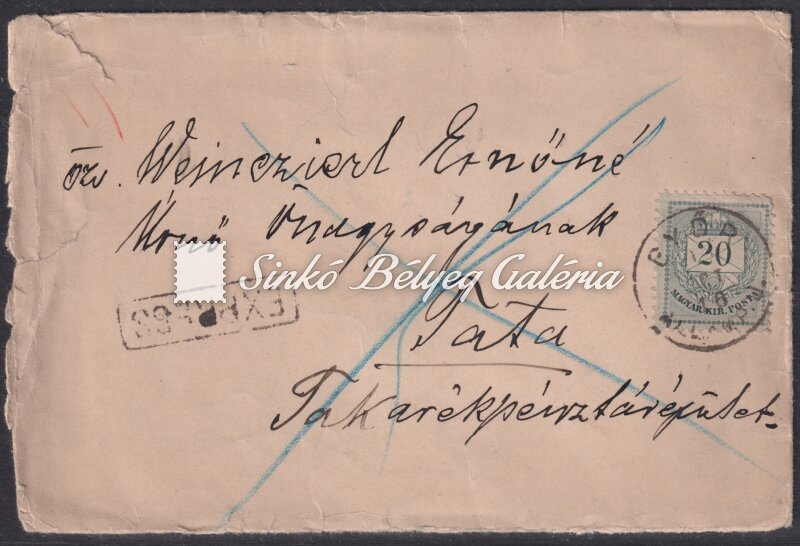 özv. Weinczierl Ernőné
Úrnő Őnagyságának
Sinkó Bélyeg Galéria
EXPRESS
Tata
Takarékpénztárépület
20
MAGYAR KIR. POSTA
GYŐR
16